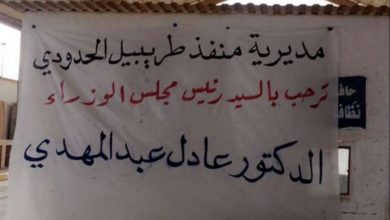 مديرية منفذ طريبيل الحدودي
ترحب بالسيد رئيس مجلس الوزراء
الدكتور عادل عبد المهدي